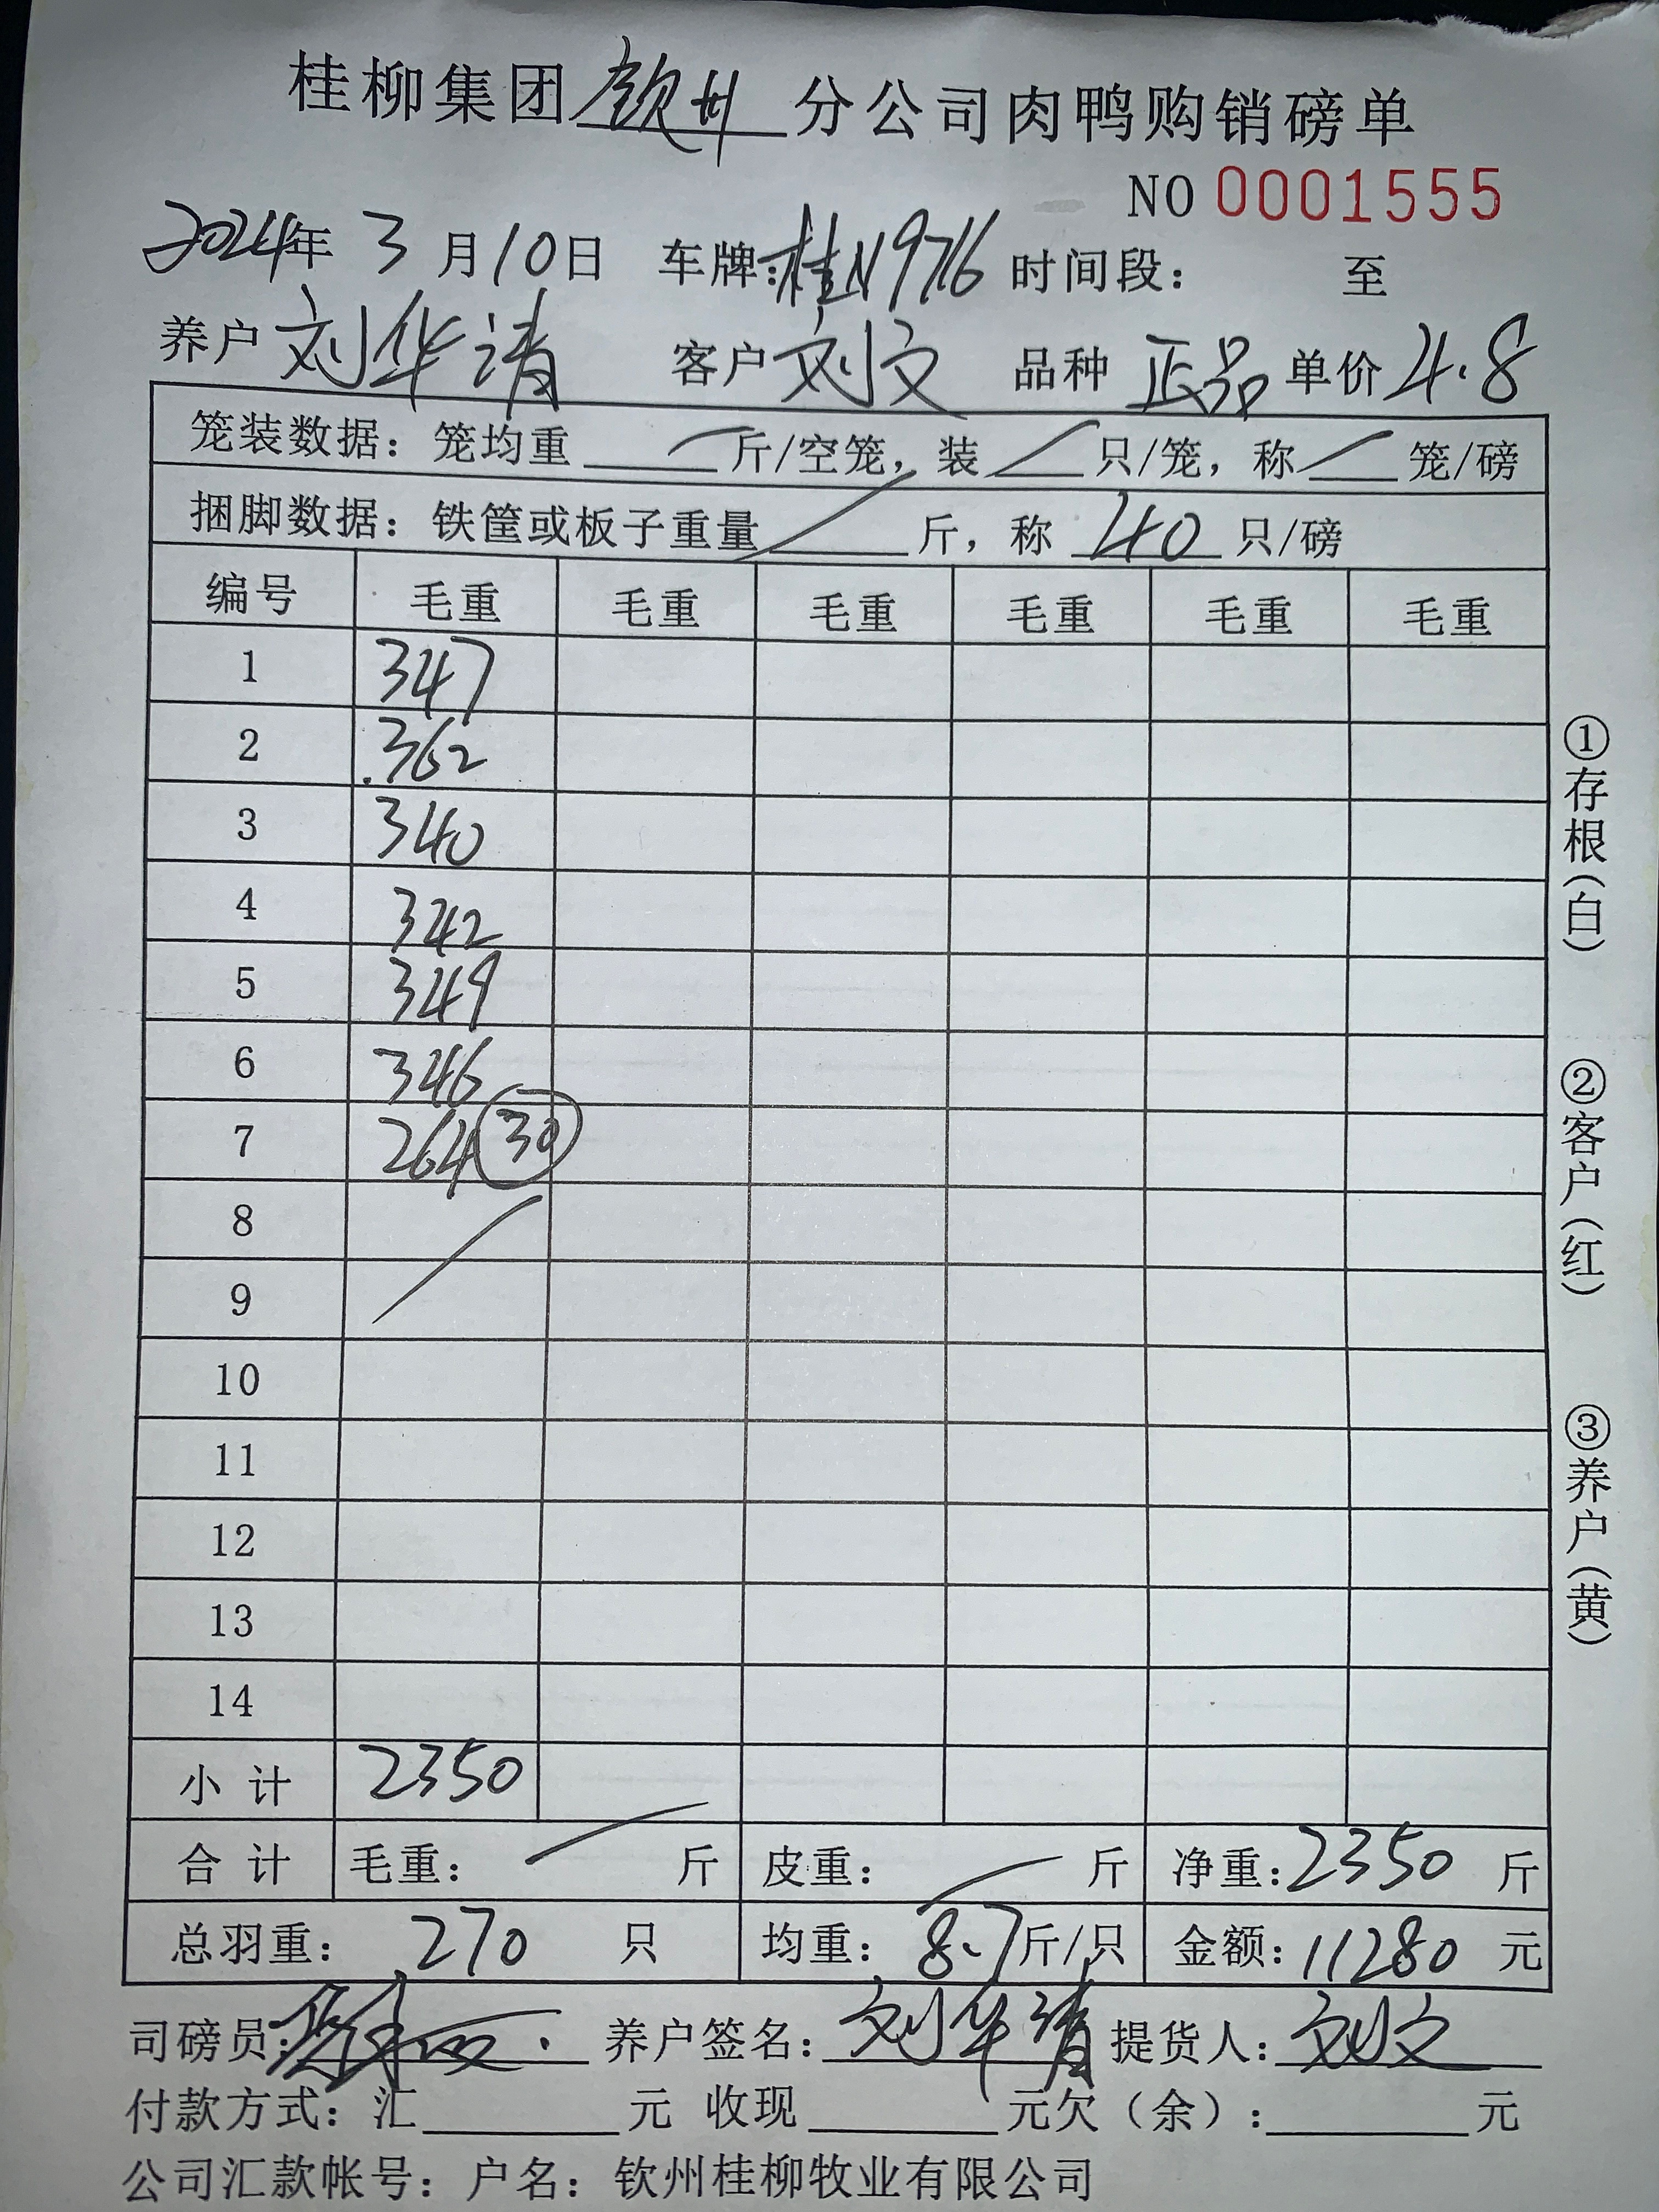 桂柳集团钦州分公司肉鸭购销磅单
NO 0001555
2024年 3月10日 车牌:桂N9716 时间段: 至
养户 刘华清 客户 刘文 品种 正品 单价 4.8
笼装数据: 笼均重 斤/空笼, 装 只/笼, 称 笼/磅
捆脚数据: 铁筐或板子重量 斤, 称 40 只/磅
编号 毛重 毛重 毛重 毛重 毛重 毛重
1 347
2 .362
3 340
4 342
5 349
6 346
7 264 30
8
9
10
11
12
13
14
小计 2350
合计 毛重: 斤 皮重: 斤 净重: 2350 斤
总羽重: 270 只 均重: 8.7 斤/只 金额: 11280 元
司磅员: 养户签名: 刘华清 提货人: 刘文
付款方式: 汇 元 收现 元欠(余): 元
公司汇款帐号: 户名: 钦州桂柳牧业有限公司
①存根(白)
②客户(红)
③养户(黄)